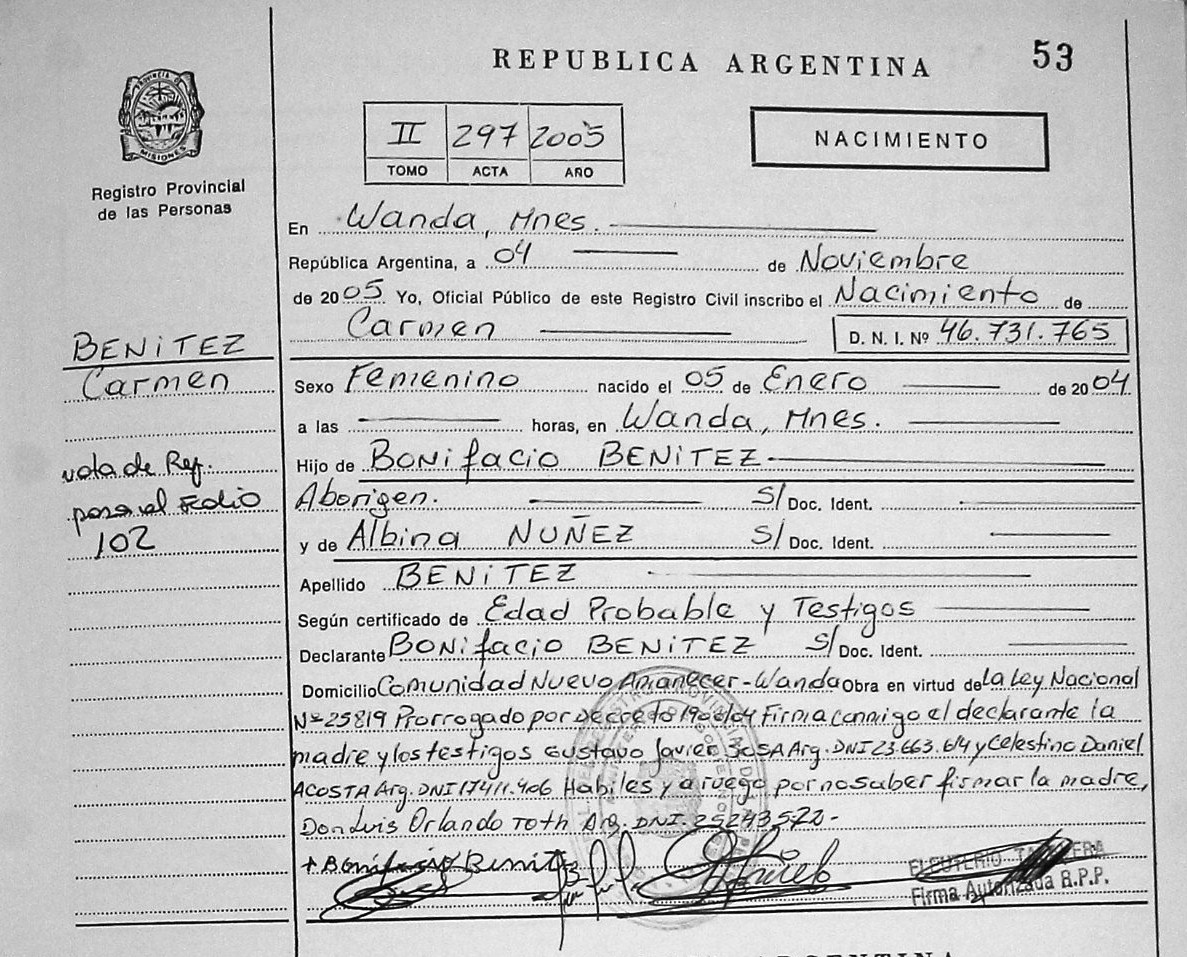 REPUBLICA ARGENTINA 53
PROVINCIA DE
MISIONES
Registro Provincial
de las Personas
II 297 2005
TOMO ACTA AÑO
NACIMIENTO
En Wanda, Mnes.
República Argentina, a 04 de Noviembre
de 2005 Yo, Oficial Público de este Registro Civil inscribo el Nacimiento de
Carmen D. N. I. Nº 46.731.765
BENITEZ
Carmen
nota de Ref.
pasa al Folio
102
Sexo Femenino nacido el 05 de Enero de 2004
a las horas, en Wanda, Mnes.
Hijo de Bonifacio BENITEZ
Aborigen. S/ Doc. Ident.
y de Albina NUÑEZ S/ Doc. Ident.
Apellido BENITEZ
Según certificado de Edad Probable y Testigos
Declarante Bonifacio BENITEZ S/ Doc. Ident.
Domicilio Comunidad Nuevo Amanecer-Wanda Obra en virtud de la Ley Nacional
Nº 25819 Prorrogado por Decreto 1900/04 Firma conmigo el declarante la
madre y los testigos Gustavo Javier SOSA Arg. DNI 23.663.614 y Celestino Daniel
ACOSTA Arg. DNI 17411.406 Habiles y a ruego por no saber firmar la madre,
Don Luis Orlando Toth Arg. DNI 25243572-
+ Bonifacio Benitez
ELEUTERIO
Firma Autorizada R.P.P.
ARGENTINA